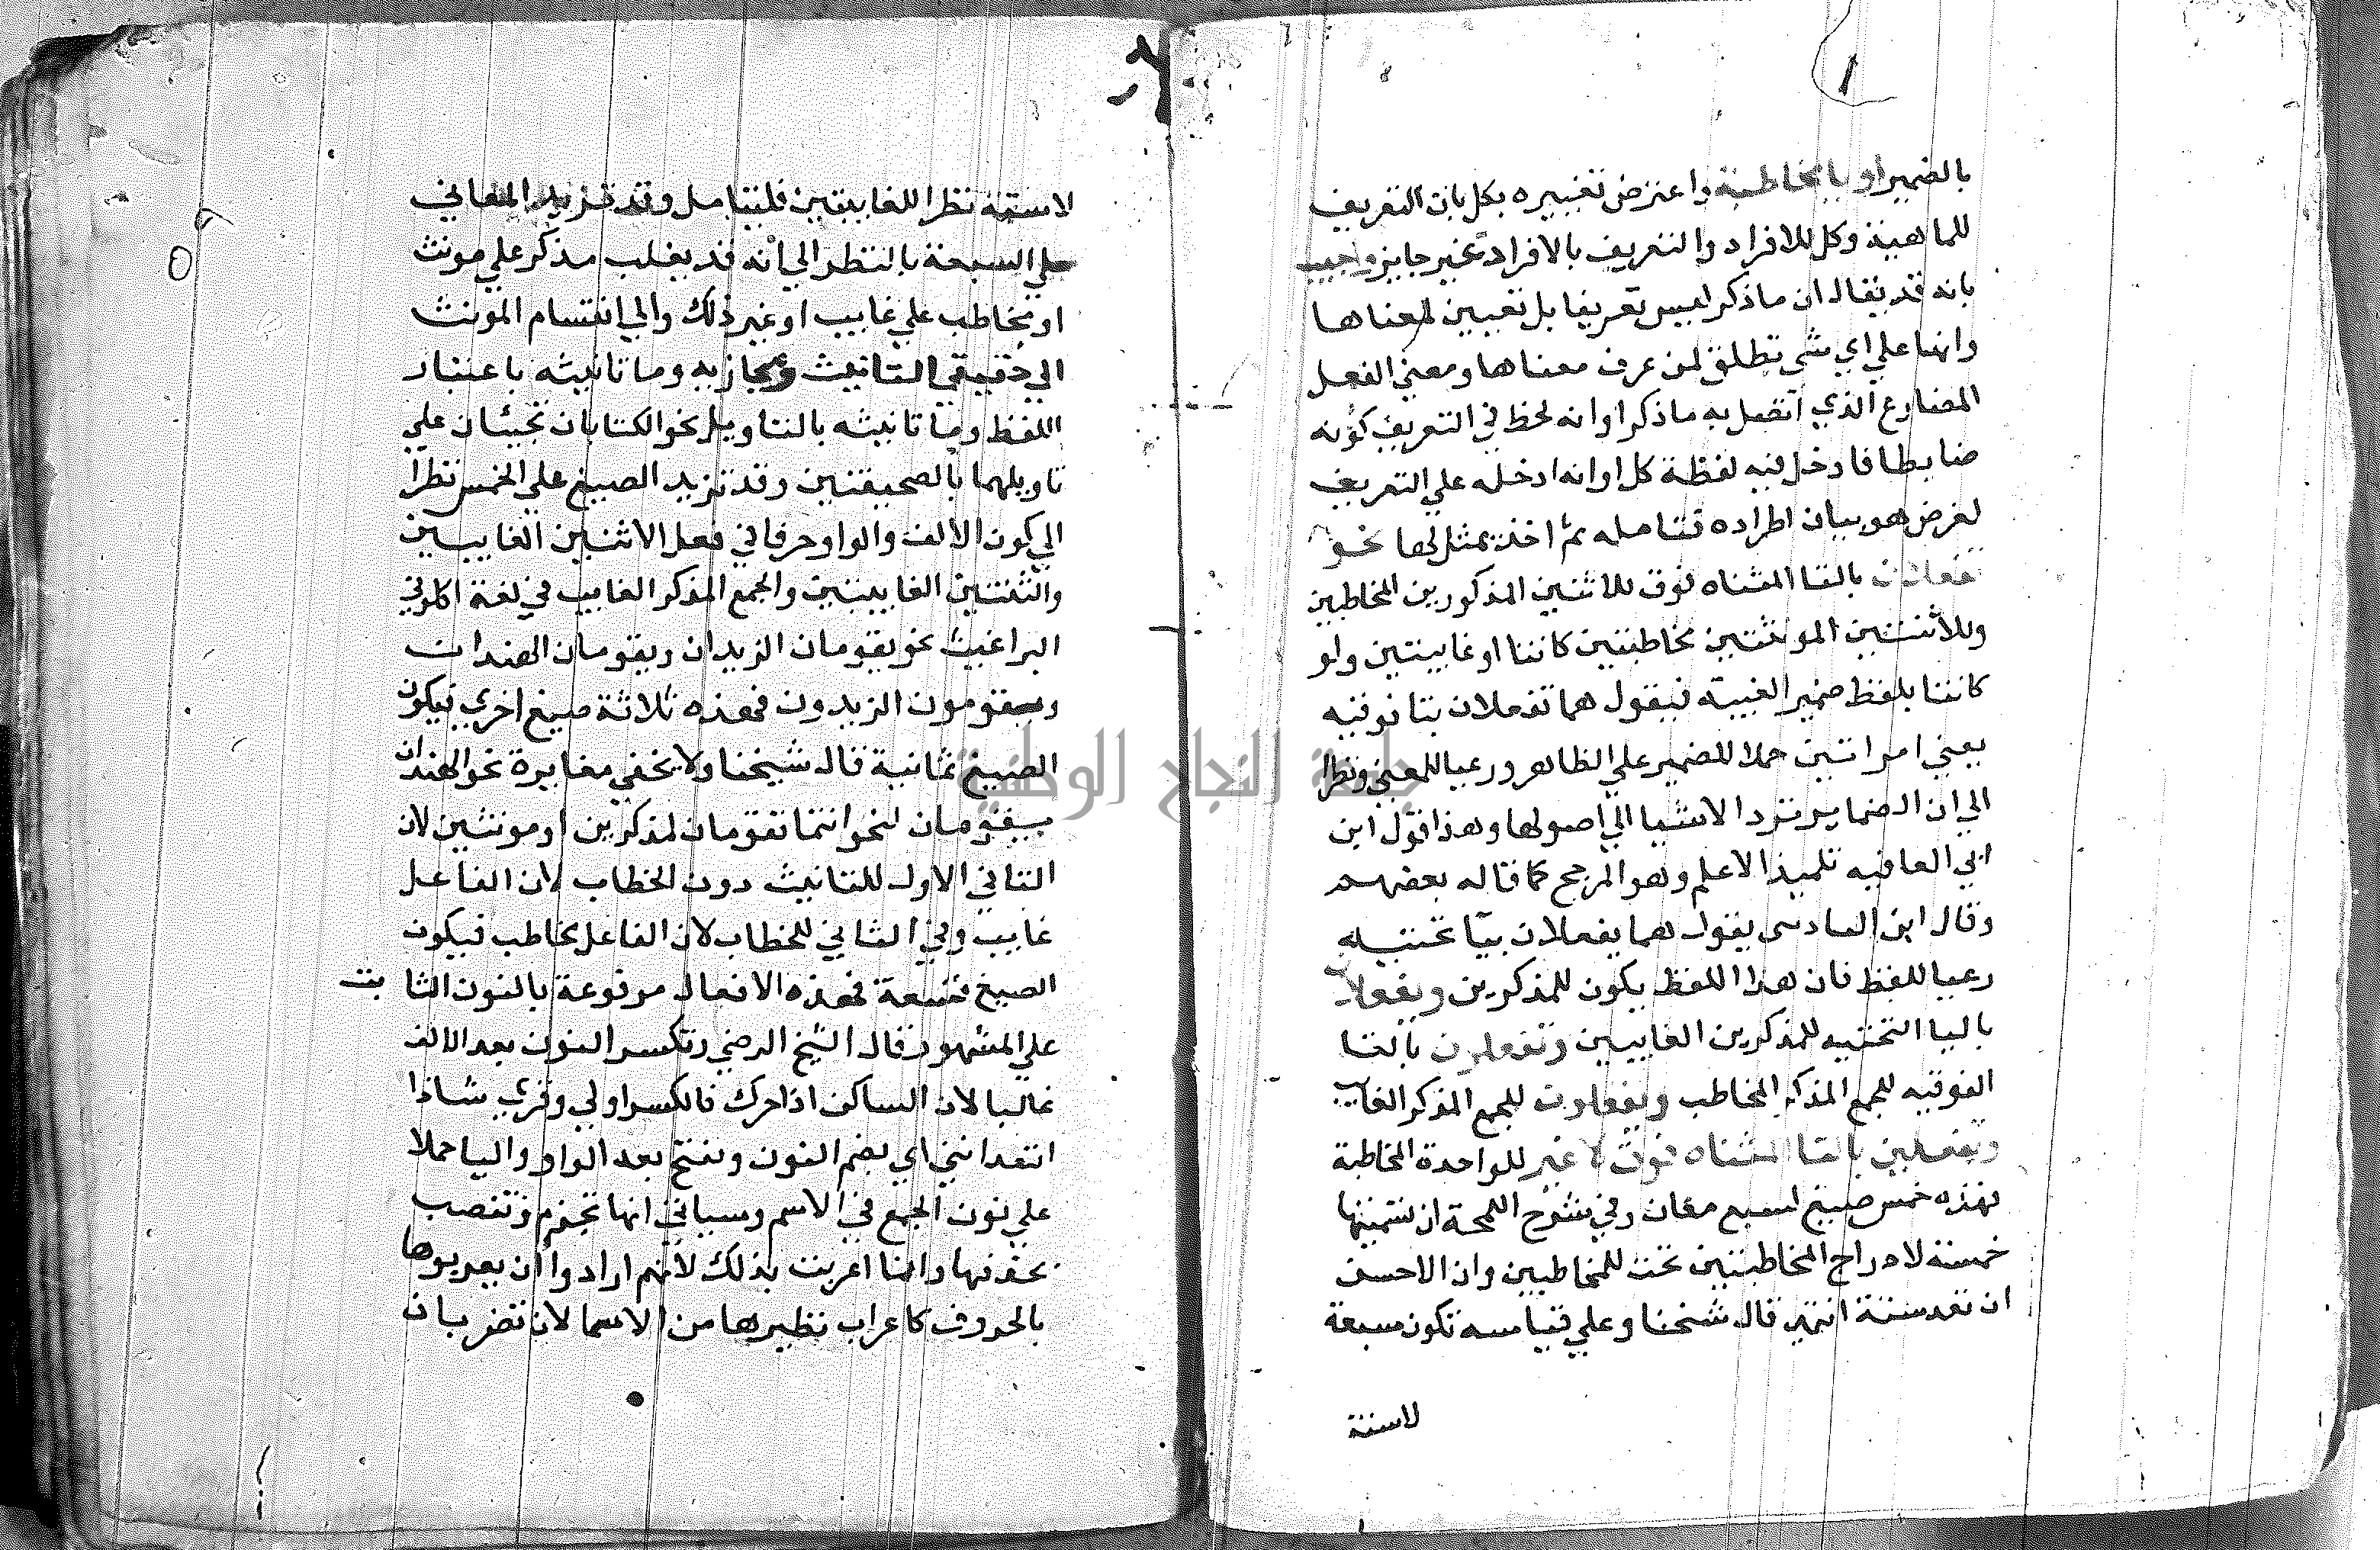 بالضمير او بالمخاطبة واعترض تعبيره بكل بان التعريف
للماهية وكل للافراد والتعريف بالافراد غير جايز واجيب
بانه قد يقال ان ما ذكر ليس تعريفا بل تعيين لمعناها
وانها علي اي شي تطلق لمن عرف معناها ومعني الفعل
المضارع الذي اتصل به ما ذكر او انه لحظ في التعريف كونه
ضابطا فادخل فيه لفظة كل او انه ادخله علي التعريف
لغرض هو بيان اطراده فتامله ثم اخذ يمثل لها نحو
تفعلان بالتا المثناه فوق للاثنين المذكورين المخاطبين
وللاثنتين المونثتين مخاطبتين كانتا او غايبتين ولو
كانتا بلفظ ضمير الغيبة فيقول هما تفعلان بتا فوقيه
يعني امراتين حملا للضمير علي الظاهر ورعيا للمعني ونظرا
الي ان الضماير ترد الاشيا الي اصولها وهذا قول ابن
ابي العافيه تلميذ الاعلم وهو المرجح كما قاله بعضهم
وقال ابن البادش يقول هما يفعلان بيا تحتيه
رعيا للفظ فان هذا اللفظ يكون للمذكرين ويفعلان
باليا التحتيه للمذكرين الغايبين وتفعلون بالتا
الفوقيه للجمع المذكر المخاطب ويفعلون للجمع المذكر الغايب
وتفعلين بالتا المثناه فوق لا غير للواحدة المخاطبة
فهذه خمس صيغ لسبع معان وفي شرح اللمحة ان تسميتها
خمسة لادراج المخاطبتين تحت المخاطبين وان الاحسن
ان تعد ستة انتهي قال شيخنا وعلي قياسه تكون سبعة
لاستة
لاستة نظرا للغايبتين فليتامل وقد تزيد المعاني
علي السبعة بالنظر الي انه قد يغلب مذكر علي مونث
او مخاطب علي غايب او غير ذلك والي انقسام المونث
الي حقيقي التانيث ومجازيه وما تانيثه باعتبار
اللفظ وما تانيثه بالتاويل نحو الكتابان تجيئان علي
تاويلهما بالصحيفتين وقد تزيد الصيغ علي الخمس نظرا
الي كون الالف والواو حرفا في فعل الاثنين الغايبين
والثنتين الغايبتين والجمع المذكر الغايب في لغة اكلوني
البراغيث نحو يقومان الزيدان ويقومان الهندات
ويقومون الزيدون فهذه ثلاثة صيغ اخري فيكون
الصيغ ثمانية قال شيخنا ولا يخفي مغايرة نحو الهندان
يقومان لنحو انتما تقومان لمذكرين او مونثين لان
التا في الاول للتانيث دون الخطاب لان الفاعل
غايب وفي الثاني للخطاب لان الفاعل مخاطب فيكون
الصيغ تسعة فهذه الافعال مرفوعة بالنون الثابت
علي المشهور قال الشيخ الرضي وتكسر النون بعد الالف
غالبا لان الساكن اذا حرك فالكسر اولي وقري شاذا
اتعدانني اي بضم النون وتفتح بعد الواو واليا حملا
علي نون الجمع في الاسم وسياتي انها تجزم وتنصب
بحذفها وانما اعربت بذلك لانهم ارادوا ان يعربوها
بالحروف كاعراب نظيرها من الاسما لان تضربان
جامعة النجاح الوطنية